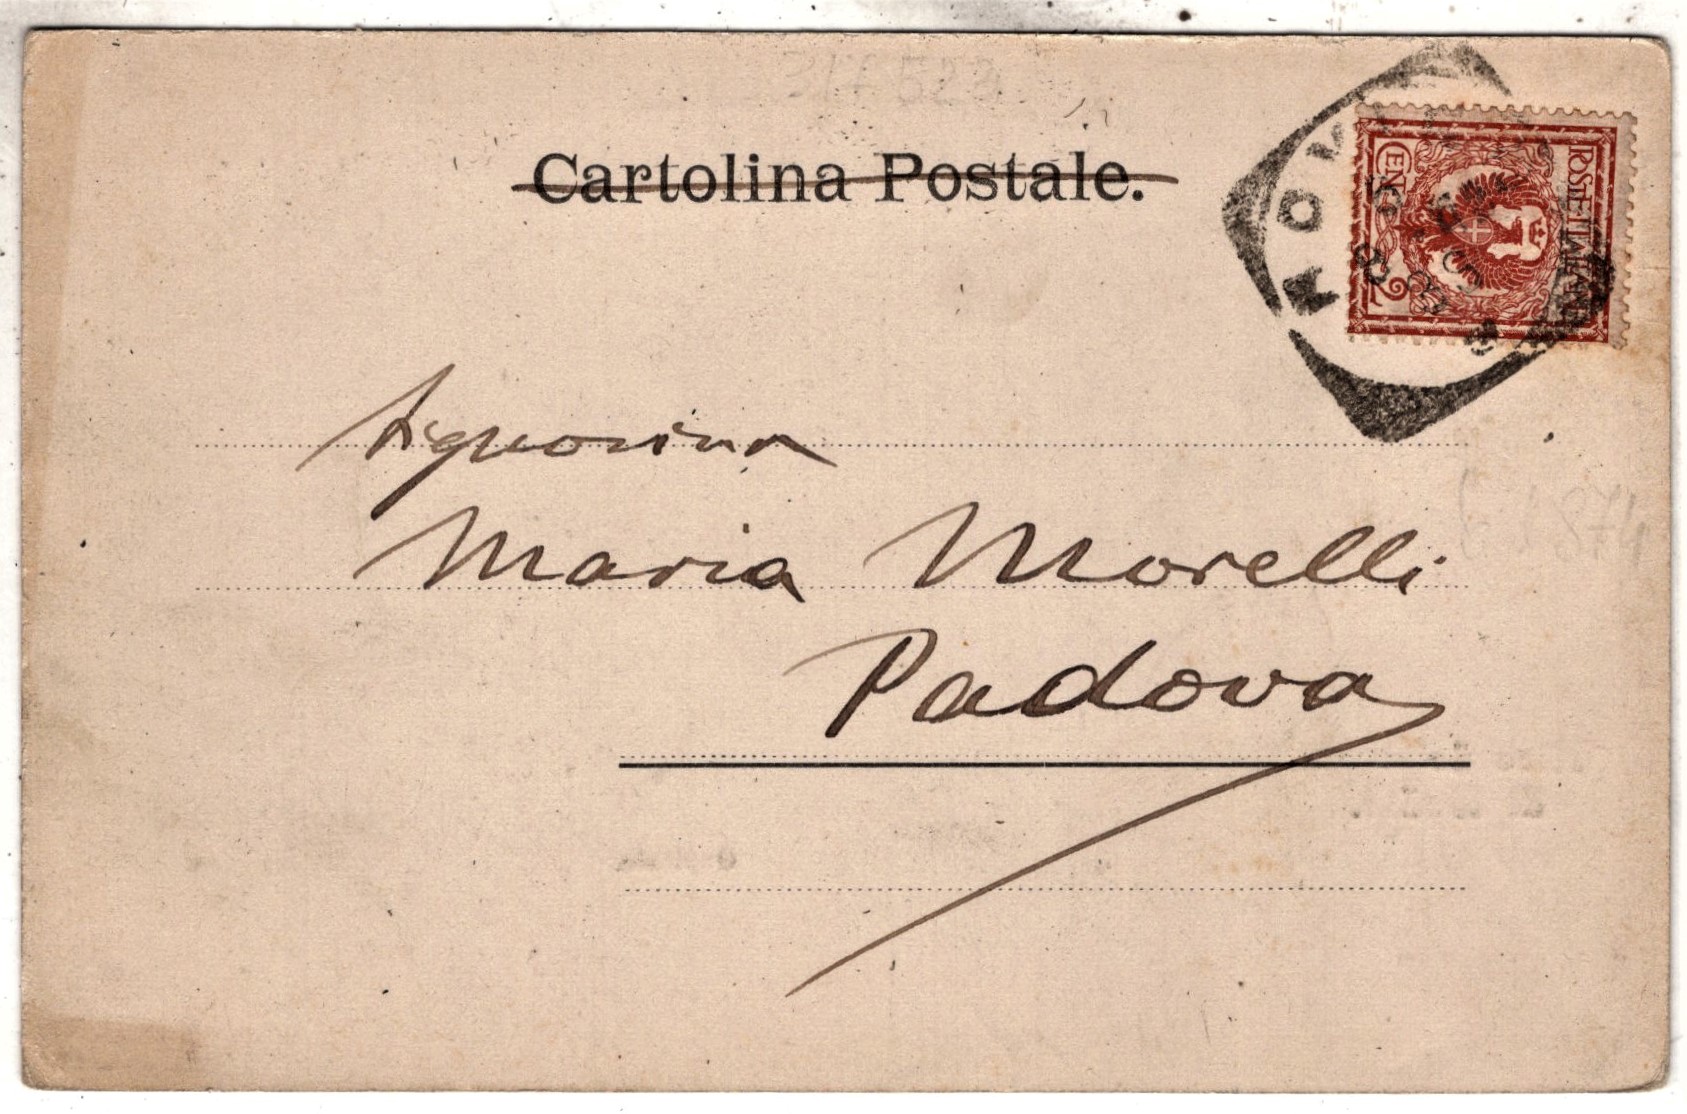 317 523
Cartolina Postale.
POSTE ITALIANE
CENT 2
Signorina
Maria Morelli
Padova